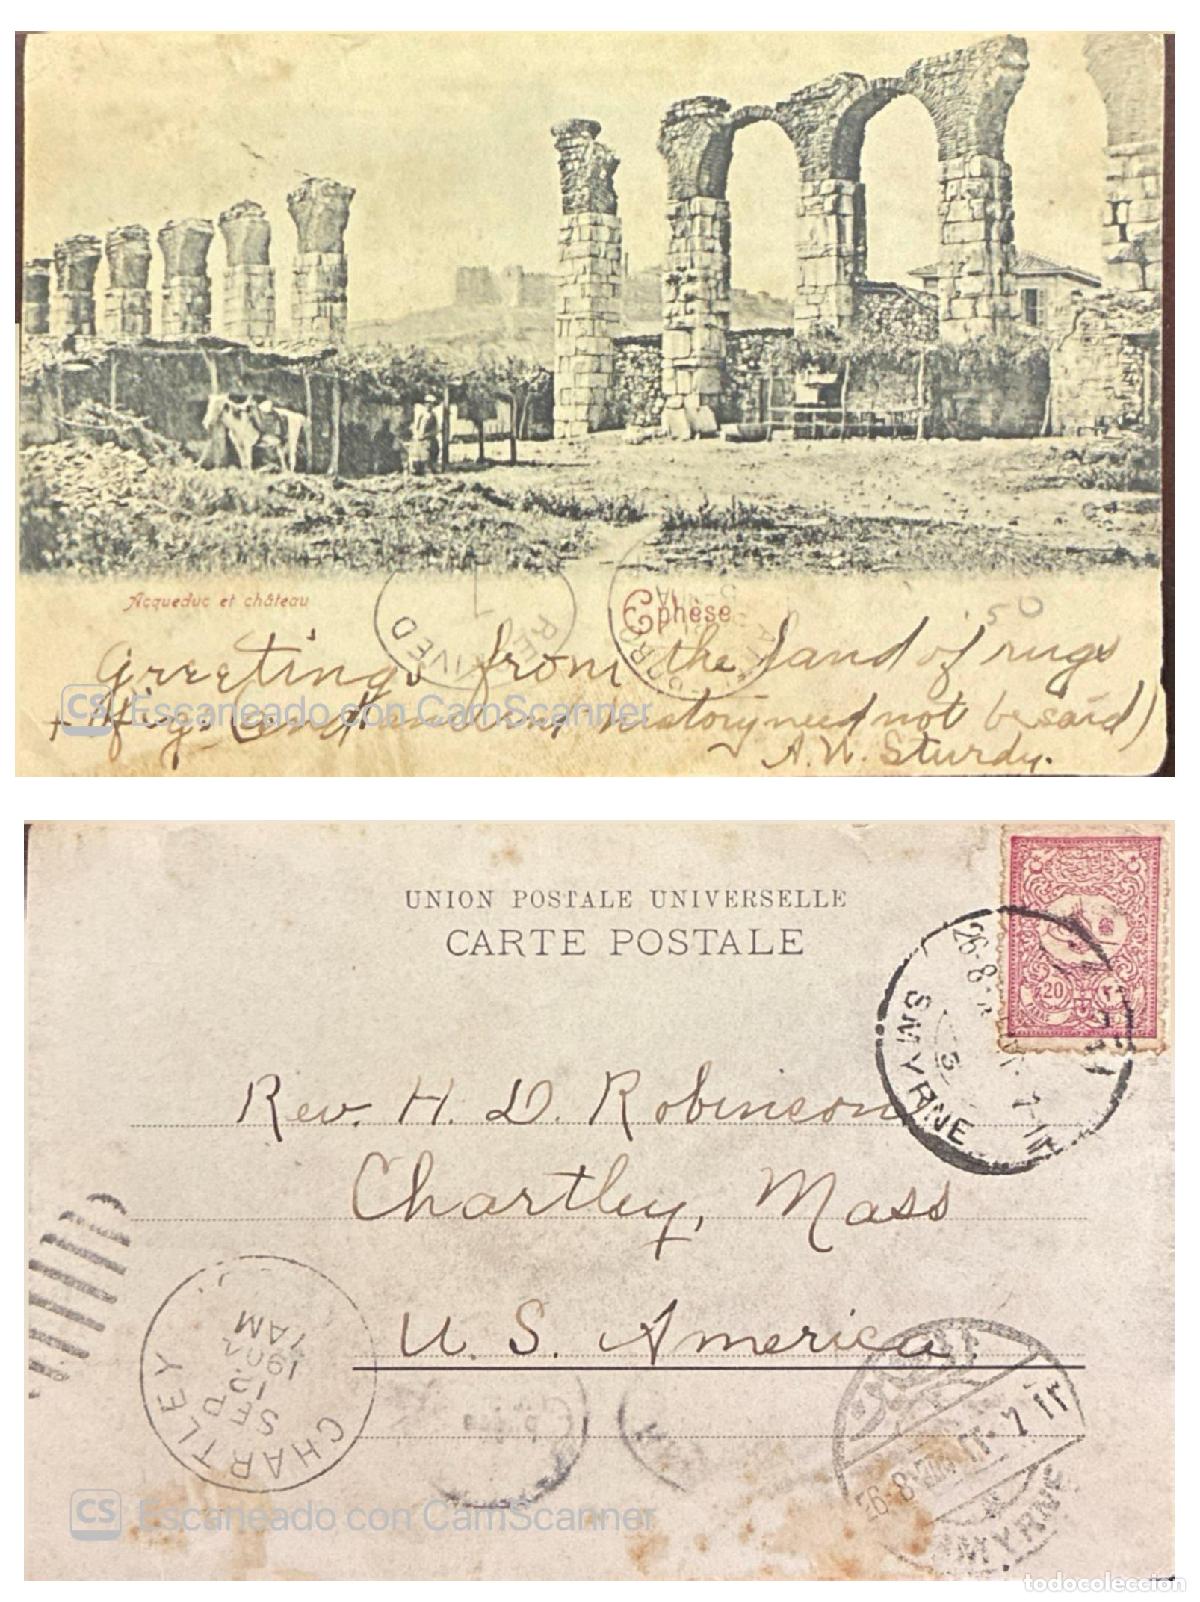 Acqueduc et château
Ephèse
RECEIVED
50
Greetings from the land of rugs
+ figs. (and ancient history need not be said)
A. W. Sturdy.
CS Escaneado con CamScanner
UNION POSTALE UNIVERSELLE
CARTE POSTALE
20
SMYRNE
26-8
5
Rev. H. D. Robinson
Chartley, Mass
U. S. America
CHARTLEY
SEP
1
7AM
SMYRNE
CS Escaneado con CamScanner
todocoleccion